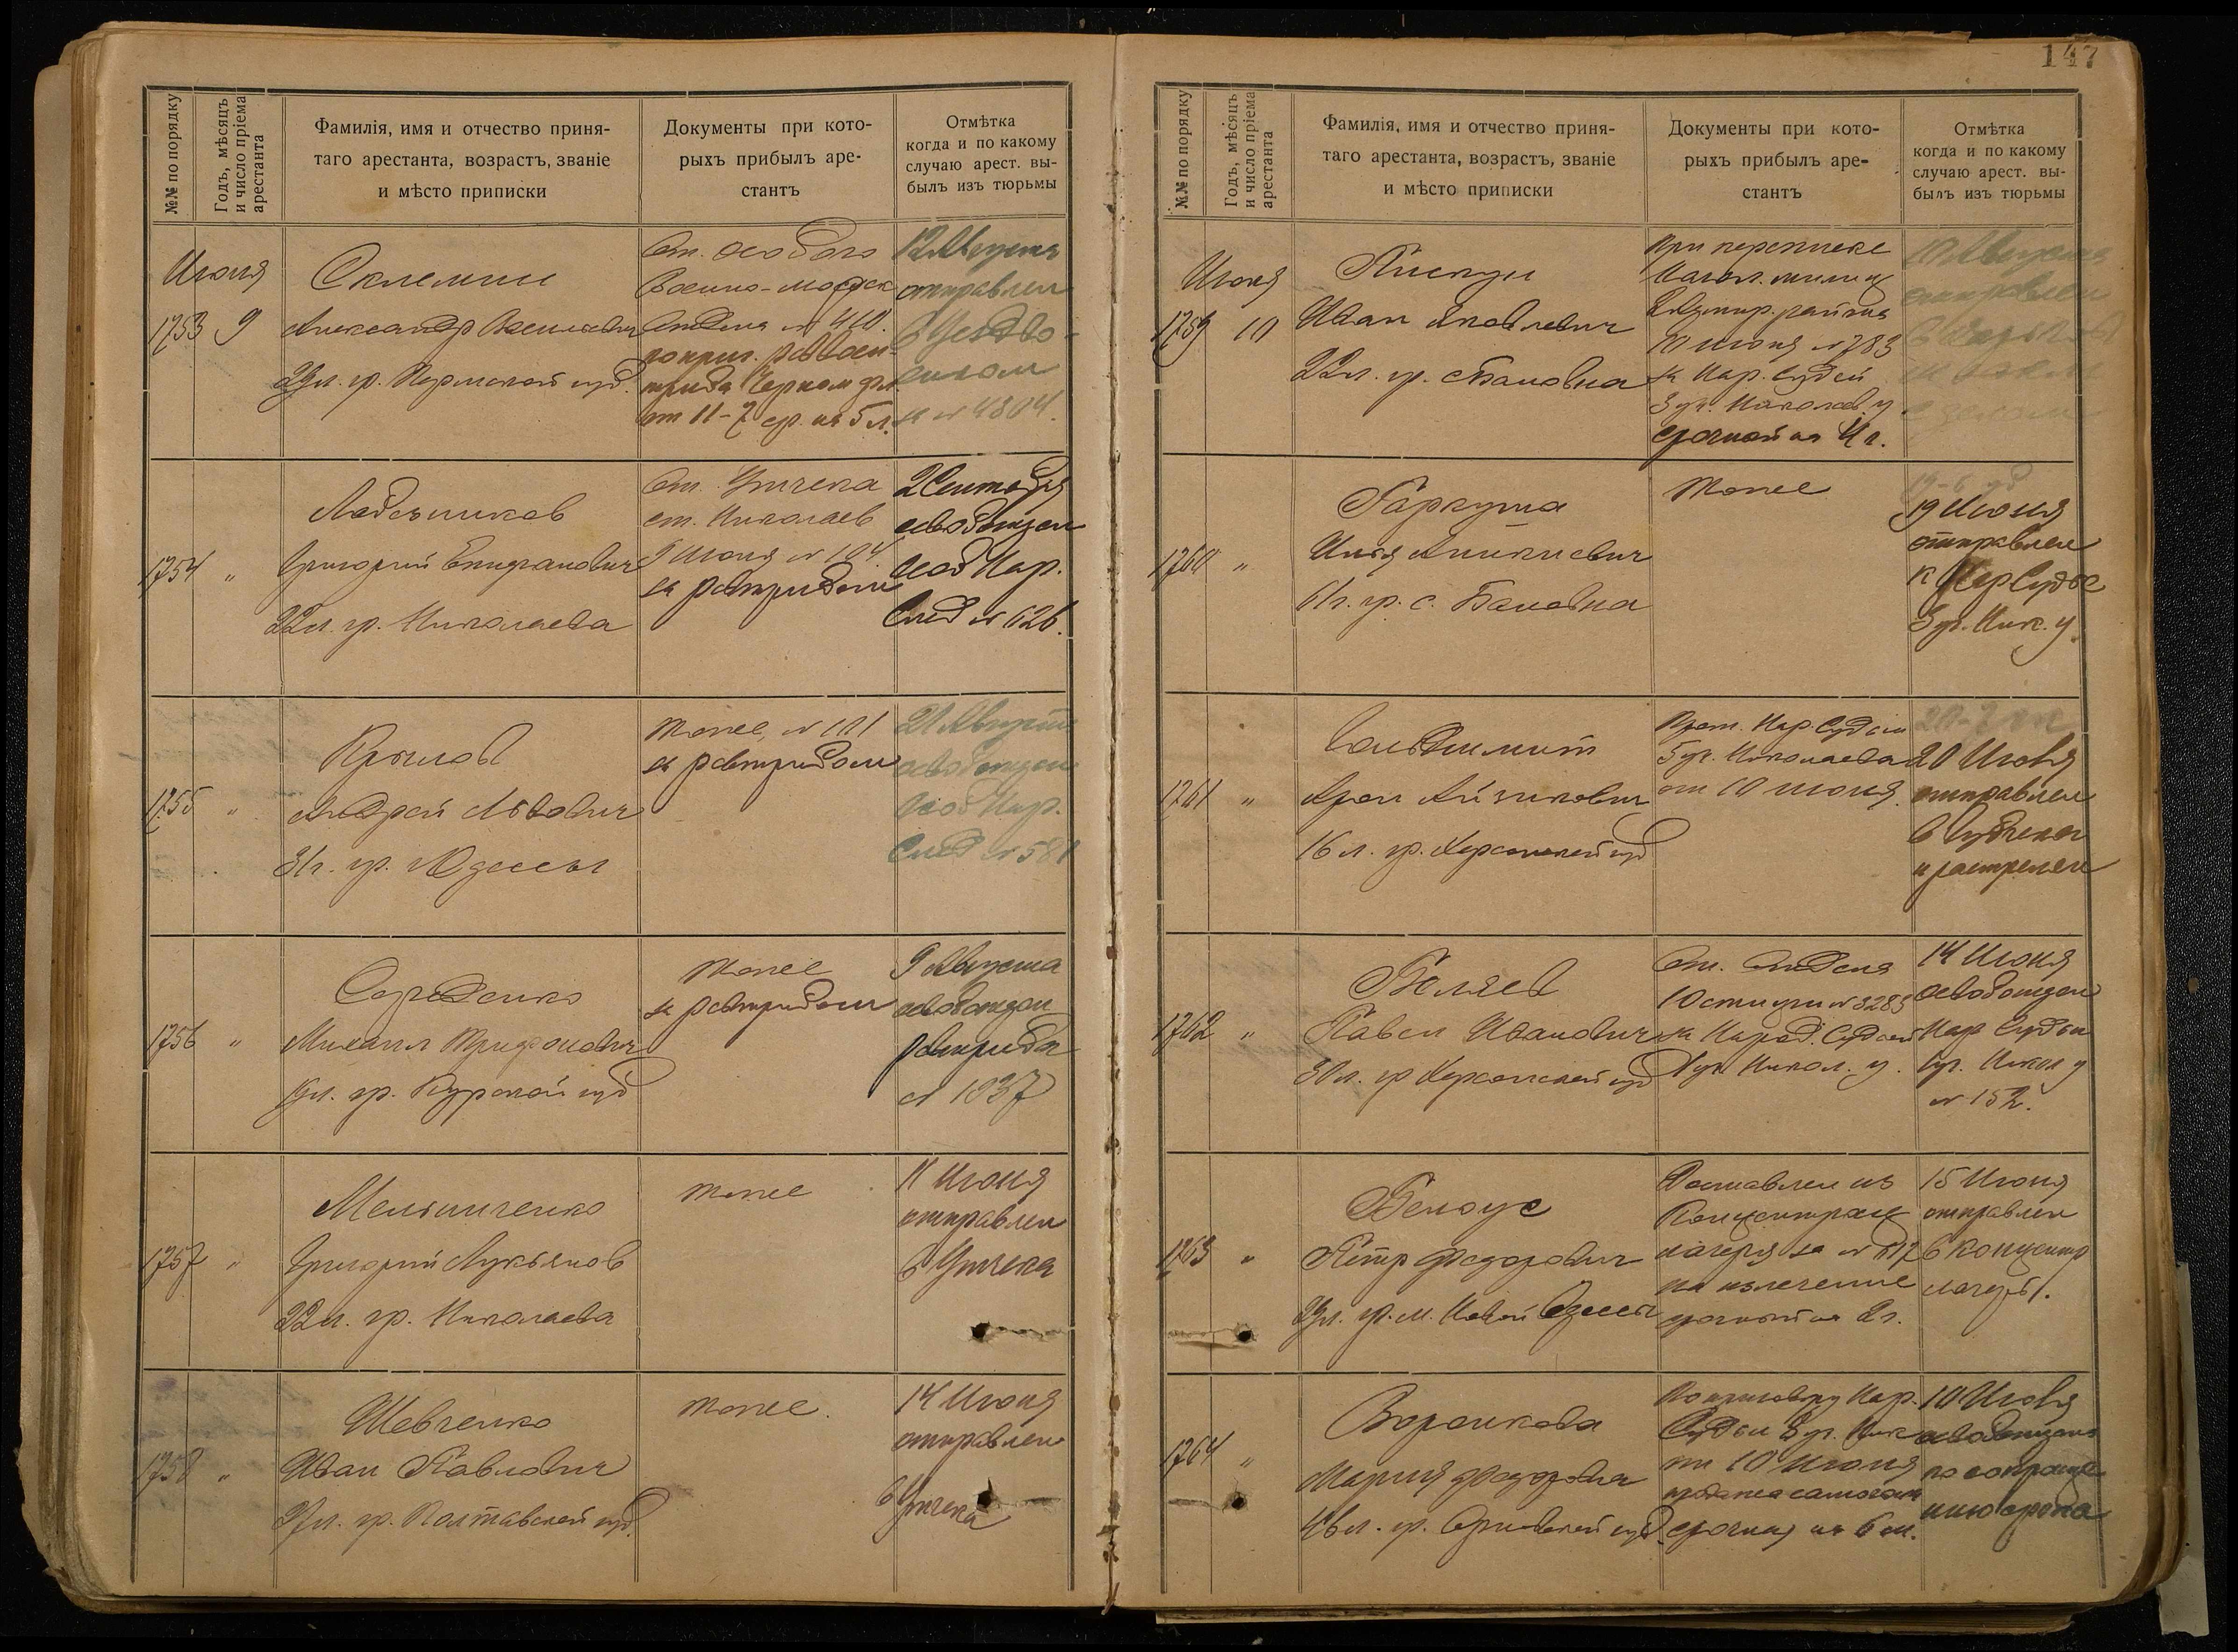 №№ по порядку
Годъ, мѣсяцъ
и число пріема
арестанта
Фамилія, имя и отчество приня-
таго арестанта, возрастъ, званіе
и мѣсто приписки
Документы при кото-
рыхъ прибылъ аре-
стантъ
Отмѣтка
когда и по какому
случаю арест. вы-
былъ изъ тюрьмы
Июня
1753 9
Александр Васильевич
гр. Пермской губ.
От. особого
Военно-морск
Отдела № 410.
от 11-7 ср. на 5 л.
12 Августа
отправлен
№ 4804.
1754 "
Григорий Епифанович
22 л. гр. Николаева
От. Упчека
ст. Николаев
9 Июня № 104
за ревтрибом
2 Сентября
освобожден
Особ Нар.
След № 626.
1755 "
Крылов
Андрей Львович
31 г. гр. Одессы
тоже, № 101
за ревтрибом
21 Августа
освобожден
Особ Нар.
След № 581
1756 "
Середенко
Михаил Трифонович
гр. Курской губ
тоже
за ревтрибом
9 Августа
освобожден
ревтриба
№ 1037
1757 "
Мельниченко
Григорий Лукьянов
22 л. гр. Николаева
тоже
11 Июня
отправлен
в Упчека
1758 "
Шевченко
Иван Павлович
27 л. гр. Полтавской губ.
тоже.
14 Июня
отправлен
в Упчека
147
№№ по порядку
Годъ, мѣсяцъ
и число пріема
арестанта
Фамилія, имя и отчество приня-
таго арестанта, возрастъ, званіе
и мѣсто приписки
Документы при кото-
рыхъ прибылъ аре-
стантъ
Отмѣтка
когда и по какому
случаю арест. вы-
былъ изъ тюрьмы
Июня
1759 10
Пискун
Иван Яковлевич
22 л. гр. с Баловна
При переписке
Начал. милиц
10 Июня № 783
за Нар. Судьей
3 уч. Николаев. у
срочной на 4 г.
10 Августа
отправлен
1760 "
Гаркуша
61 г. гр. с. Баловна
тоже
19 Июня
отправлен
к Нар Судье
3 уч. Ник. у.
1761 "
Гольдшмит
Арон Айзикович
16 л. гр. Херсонской губ
Нар Судьи
5 уч. Николаева
от 10 июня.
20 Июля
отправлен
в Губчека
и растрелен
1762 "
Беляев
Павел Иванович
30 л. гр Херсонской губ
От. Отдела
Юстиции № 3283
за Народ. Судьей
1 уч. Никол. у.
14 Июня
освобожден
Нар Судьи
1 уч. Никол у
№ 152.
1763 "
Белоус
Петр Федорович
гр. м. Новой Одессы
Доставлен из
Концентрац
лагеря за №
на излечение
срочной на 2 г.
15 Июня
отправлен
в концентр
лагерь.
1764 "
Воронкова
Мария Федоровна
46 л. гр. Орловской губ.
По приговору Нар.
Судьи 3 уч. Ник
от 10 Июня
продажа самогона
срочная на 6 м.
10 Июля
освобождена
по сокраще
нию срока